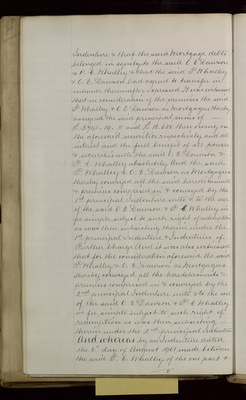 Indenture & that the said Mortgage debts
belonged in equity to the said C E Dawson
& O. E. Whalley & that the said Whalley
& C. E. Dawson had agreed to transfer in
manner thereinafter expressed It was witnessed
that in consideration of the premises the said
Whalley & C E Dawson as Mortgagees thereby
assigned the said principal sums of
and owing on
the aforesaid securities respectively and all
interest and the full benefit of all powers
& securities unto the said C E Dawson &
E. Whalley absolutely And the said
Whalley & C. E. Dawson as Mortgagees
thereby conveyed all the said hereditaments
& premises comprised in & conveyed by the
1st principal Indenture unto & to the use
of the said C E Dawson & E Whalley in
fee simple subject to such right of redemption
as was then subsisting therein under the
1st principal Indenture & Indentures of
Further Charge And it was also witnessed
that for the consideration aforesaid the said
Whalley & C. E. Dawson as Mortgagees
thereby conveyed all the hereditaments &
premises comprised in & conveyed by the
2nd principal Indenture unto & to the use
of the said C E Dawson & E Whalley
in fee simple subject to such right of
redemption as was then subsisting
therein under the 2nd principal Indenture
And whereas by an Indenture dated
the day of August 1901 made between
the said E. Whalley of the one part &